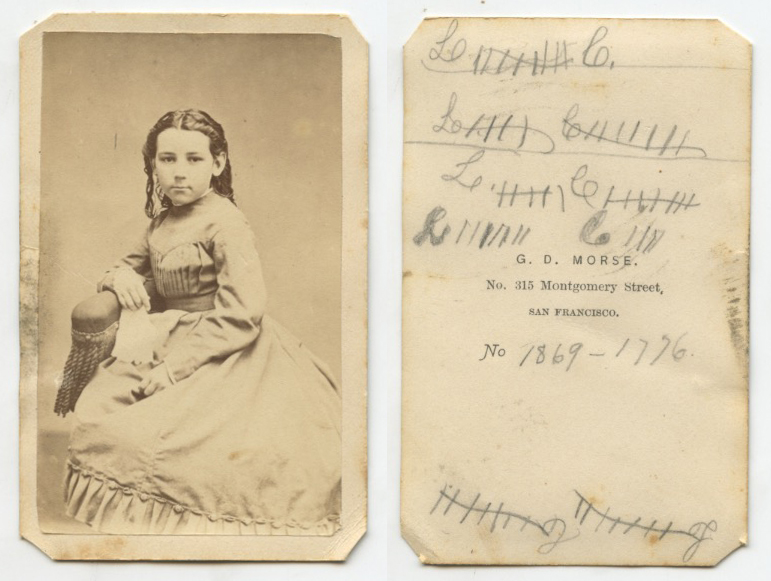 L C.
L C
L C
L C
G. D. MORSE.
No. 315 Montgomery Street,
SAN FRANCISCO.
No 1869-1776.